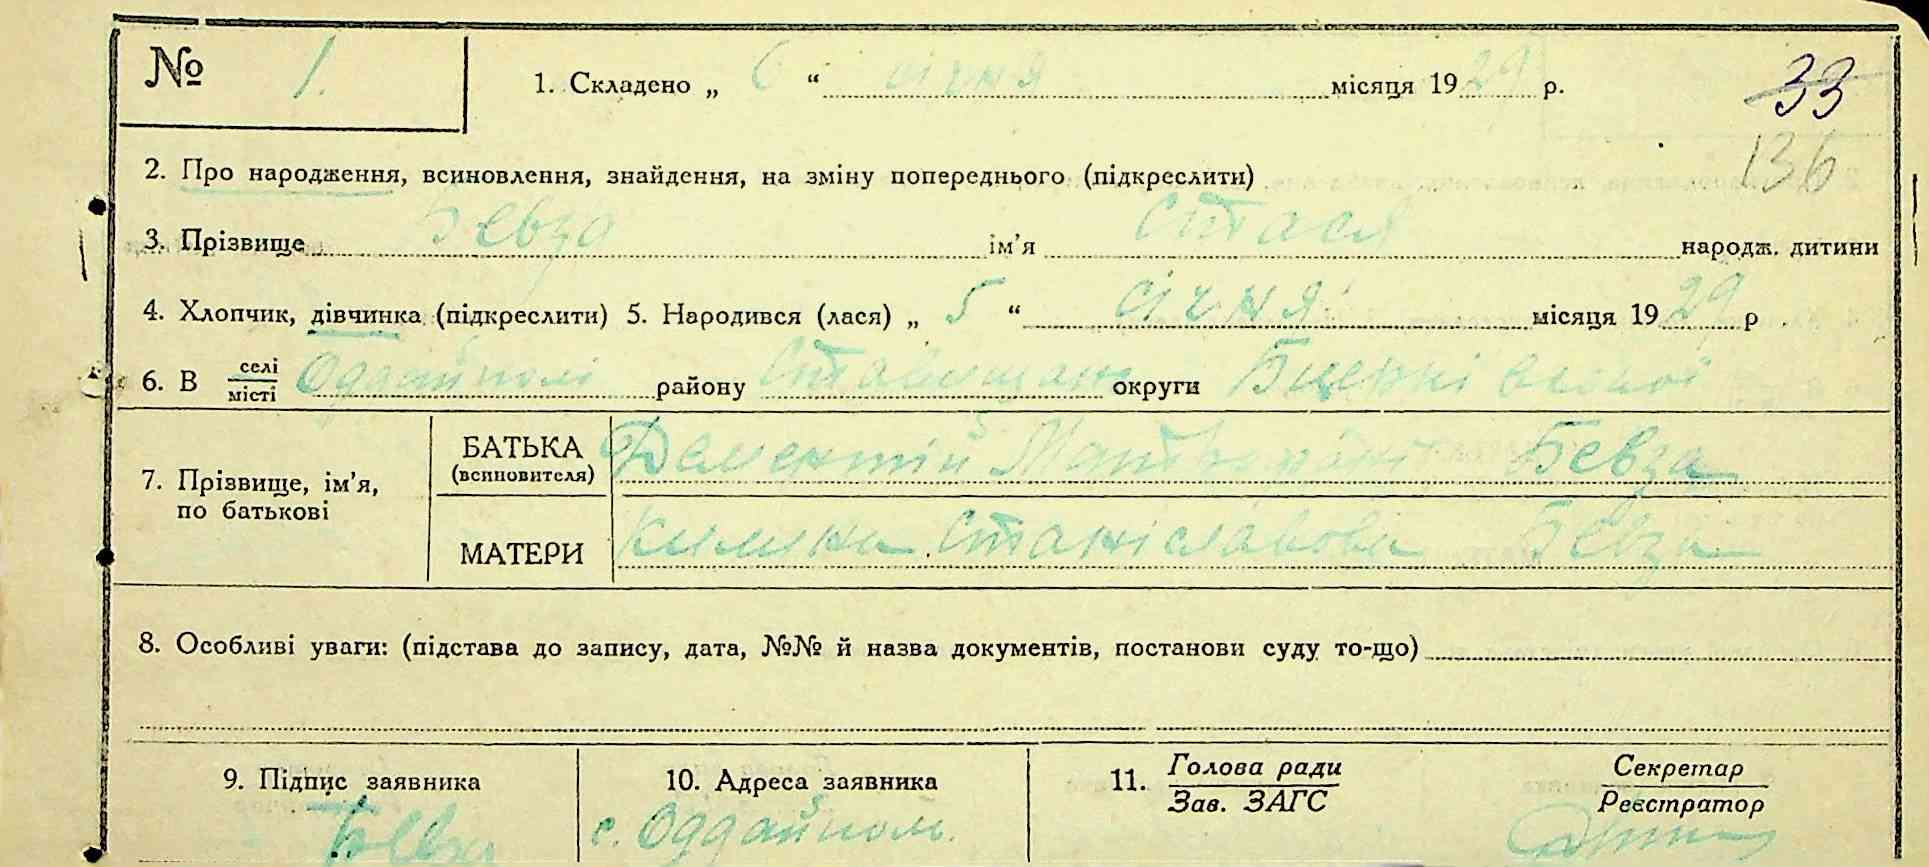 № 1. 1. Складено „ 6 “ січня місяця 1929 р. 33
136
2. Про народження, всиновлення, знайдення, на зміну попереднього (підкреслити)
3. Прізвище Бевза ім'я Стася народж. дитини
4. Хлопчик, дівчинка (підкреслити) 5. Народився (лася) „ 5 “ січня місяця 1929 р.
6. В селі Оддайполі району Ставищан округи
місті
БАТЬКА Дементій Бевза
(всиновителя)
7. Прізвище, ім'я,
по батькові
МАТЕРИ Килина Станіславова Бевза
8. Особливі уваги: (підстава до запису, дата, №№ й назва документів, постанови суду то-що)
9. Підпис заявника 10. Адреса заявника 11. Голова ради Секретар
Зав. ЗАГС Реєстратор
Бевза с. Оддайполь.